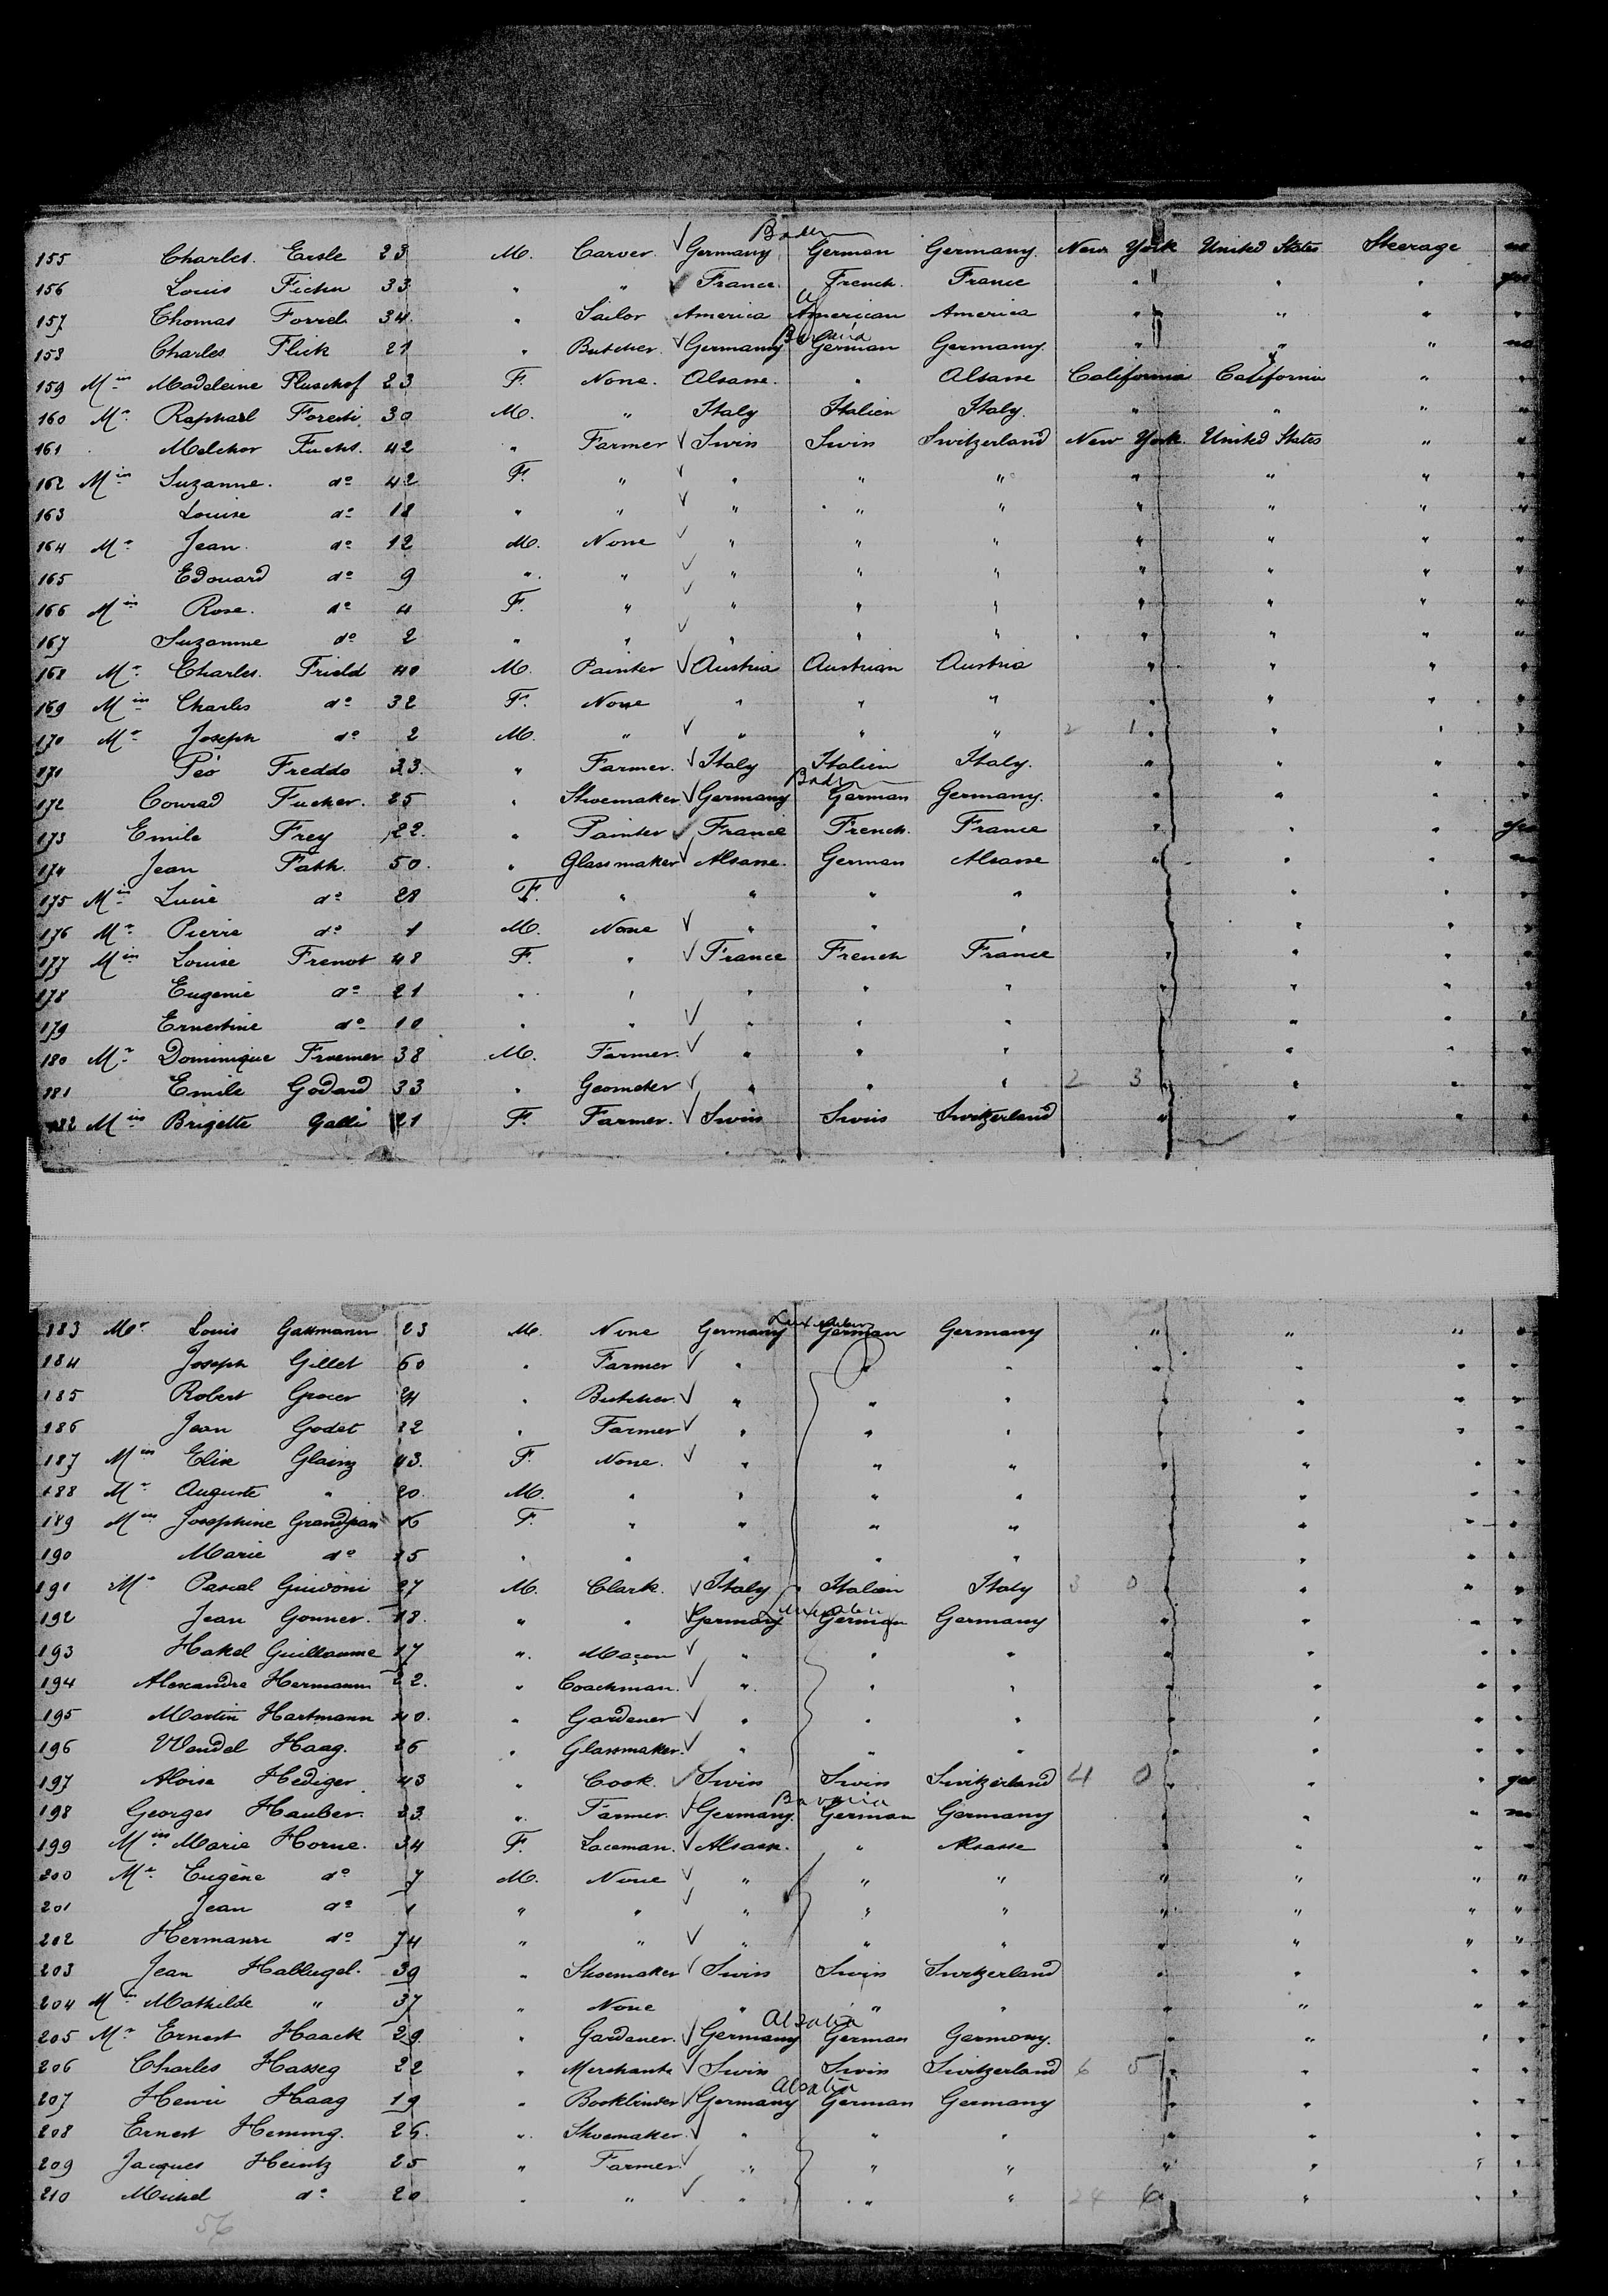 Baden
155 Charles. Eisle 23 M. Carver. Germany German Germany. New York United States Steerage no
156 Louis Fichu 33 " " France. French. France " " " yes
157 Thomas Forrel 34 " Sailor America American America " " " "
Bavaria
158 Charles Flick 21 " Butcher. Germany German Germany. " " " no
159 Min Madeleine Pluschof 23 F. None. Alsasse. " Alsasse California California " "
160 Mr Raphael Foresti 30 M. " Italy Italien Italy. " " " "
161 Melchor Fuchs. 42 " Farmer Swiss Swiss Switzerland New York United States " "
162 Min Suzanne. do 42 F. " " " " " " " "
163 Louise do 18 " " " " " " " " "
164 Mr Jean. do 12 M. None " " " " " " "
165 Edouard do 9 " " " " " " " " "
166 Min Rose. do 4 F. " " " " " " " "
167 Suzanne do 2 " " " " " " " " "
168 Mr Charles. Frield 40 M. Painter Austria Austrian Austria " " " "
169 Min Charles do 32 F. None " " " " " " "
170 Mr Joseph do 2 M. " " " " 2 1 " " "
171 Péo Freddo 33. " Farmer. Italy Italien Italy. " " " "
Baden
172 Conrad Fucher. 25 " Shoemaker Germany German Germany. " " " "
173 Emile Frey 22. " Painter France French. France " " " yes
174 Jean Fath. 50. " Glassmaker Alsasse. German Alsasse " " " no
175 Min Lucie do 28 F. " " " " " " "
176 Mr Pierre do 1 M. None " " " " " "
177 Min Louise Frenot 48 F. " France French France " " " "
178 Eugenie do 21 " " " " " " " " "
179 Ernestine do 10 " " " " " " " " "
180 Mr Dominique Fruemer 38 M. Farmer. " " " " " "
181 Emile Godard 33 " Geometer " " " 2 3 " " "
182 Min Brigette Galli 21 F. Farmer. Swiss Swiss Switzerland " " " "
183 Mr Louis Gassmann 23 M. None Germany German Germany " " " "
184 Joseph Gillet 60 " Farmer " " " " " " "
185 Robert Grocer 24 " Butcher. " " " " " " "
186 Jean Godet 22 " Farmer " " " " " " "
187 Min Elise Glainz 43. F. None. " " " " " " "
188 Mr Auguste " 20. M. " " " " " " " "
189 Min Josephine Grandjean 16 F. " " " " " " " "
190 Marie do 15 " " " " " " " "
191 Mr Pascal Guidoni 27 M. Clark. Italy Italien Italy 3 0 " " "
192 Jean Gonner. 18. " " Germany German Germany " " " "
193 Hakel Guillaume 17 " Maçon " " " " " " "
194 Alexandre Hermann 22. " Coachman. " " " " " " "
195 Martin Hartmann 40. " Gardener " " " " " " "
196 Wendel Haag. 26 " Glassmaker. " " " " " " "
197 Aloise Hediger 43 " Cook. Swiss Swiss Switzerland 4 0 " " " yes
Bavaria
198 Georges Hauber. 23. " Farmer. Germany. German Germany " " no
199 Min Marie Horne. 34 F. Laceman. Alsasse. " Alsasse " " " "
200 Mr Eugène do 7 M. None " " " " " " "
201 Jean do 1 " " " " " " " " "
202 Hermann do 74 " " " " " " " " "
203 Jean Hablugel. 39 " Shoemaker Swiss Swiss Switzerland " " " "
204 Min Mathilde " 37 " None " " " " " " "
Alsatia
205 Mr Ernest Haack 29. " Gardener. Germany German Germany. " " " "
206 Charles Hasseg 22 " Merchante Swiss Swiss Switzerland 6 5 " " "
Alsatia
207 Henri Haag 19 " Bookbinder Germany German Germany " " " "
208 Ernest Hemmg. 26. " Shoemaker. " " " " " " "
209 Jacques Heintz 25 " Farmer. " " " " " " "
210 Michel do 20 " " " " " 24 6 " " "
56